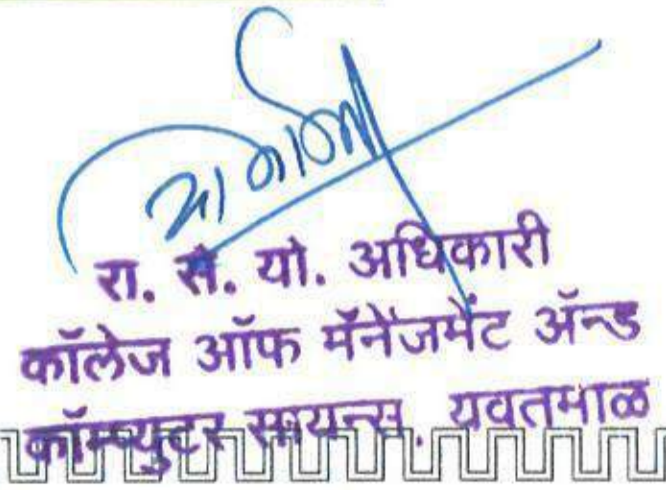 रा. से. यो. अधिकारी
कॉलेज ऑफ मॅनेंजमेंट ॲन्ड
कॉम्प्युटर सायन्स. यवतमाळ